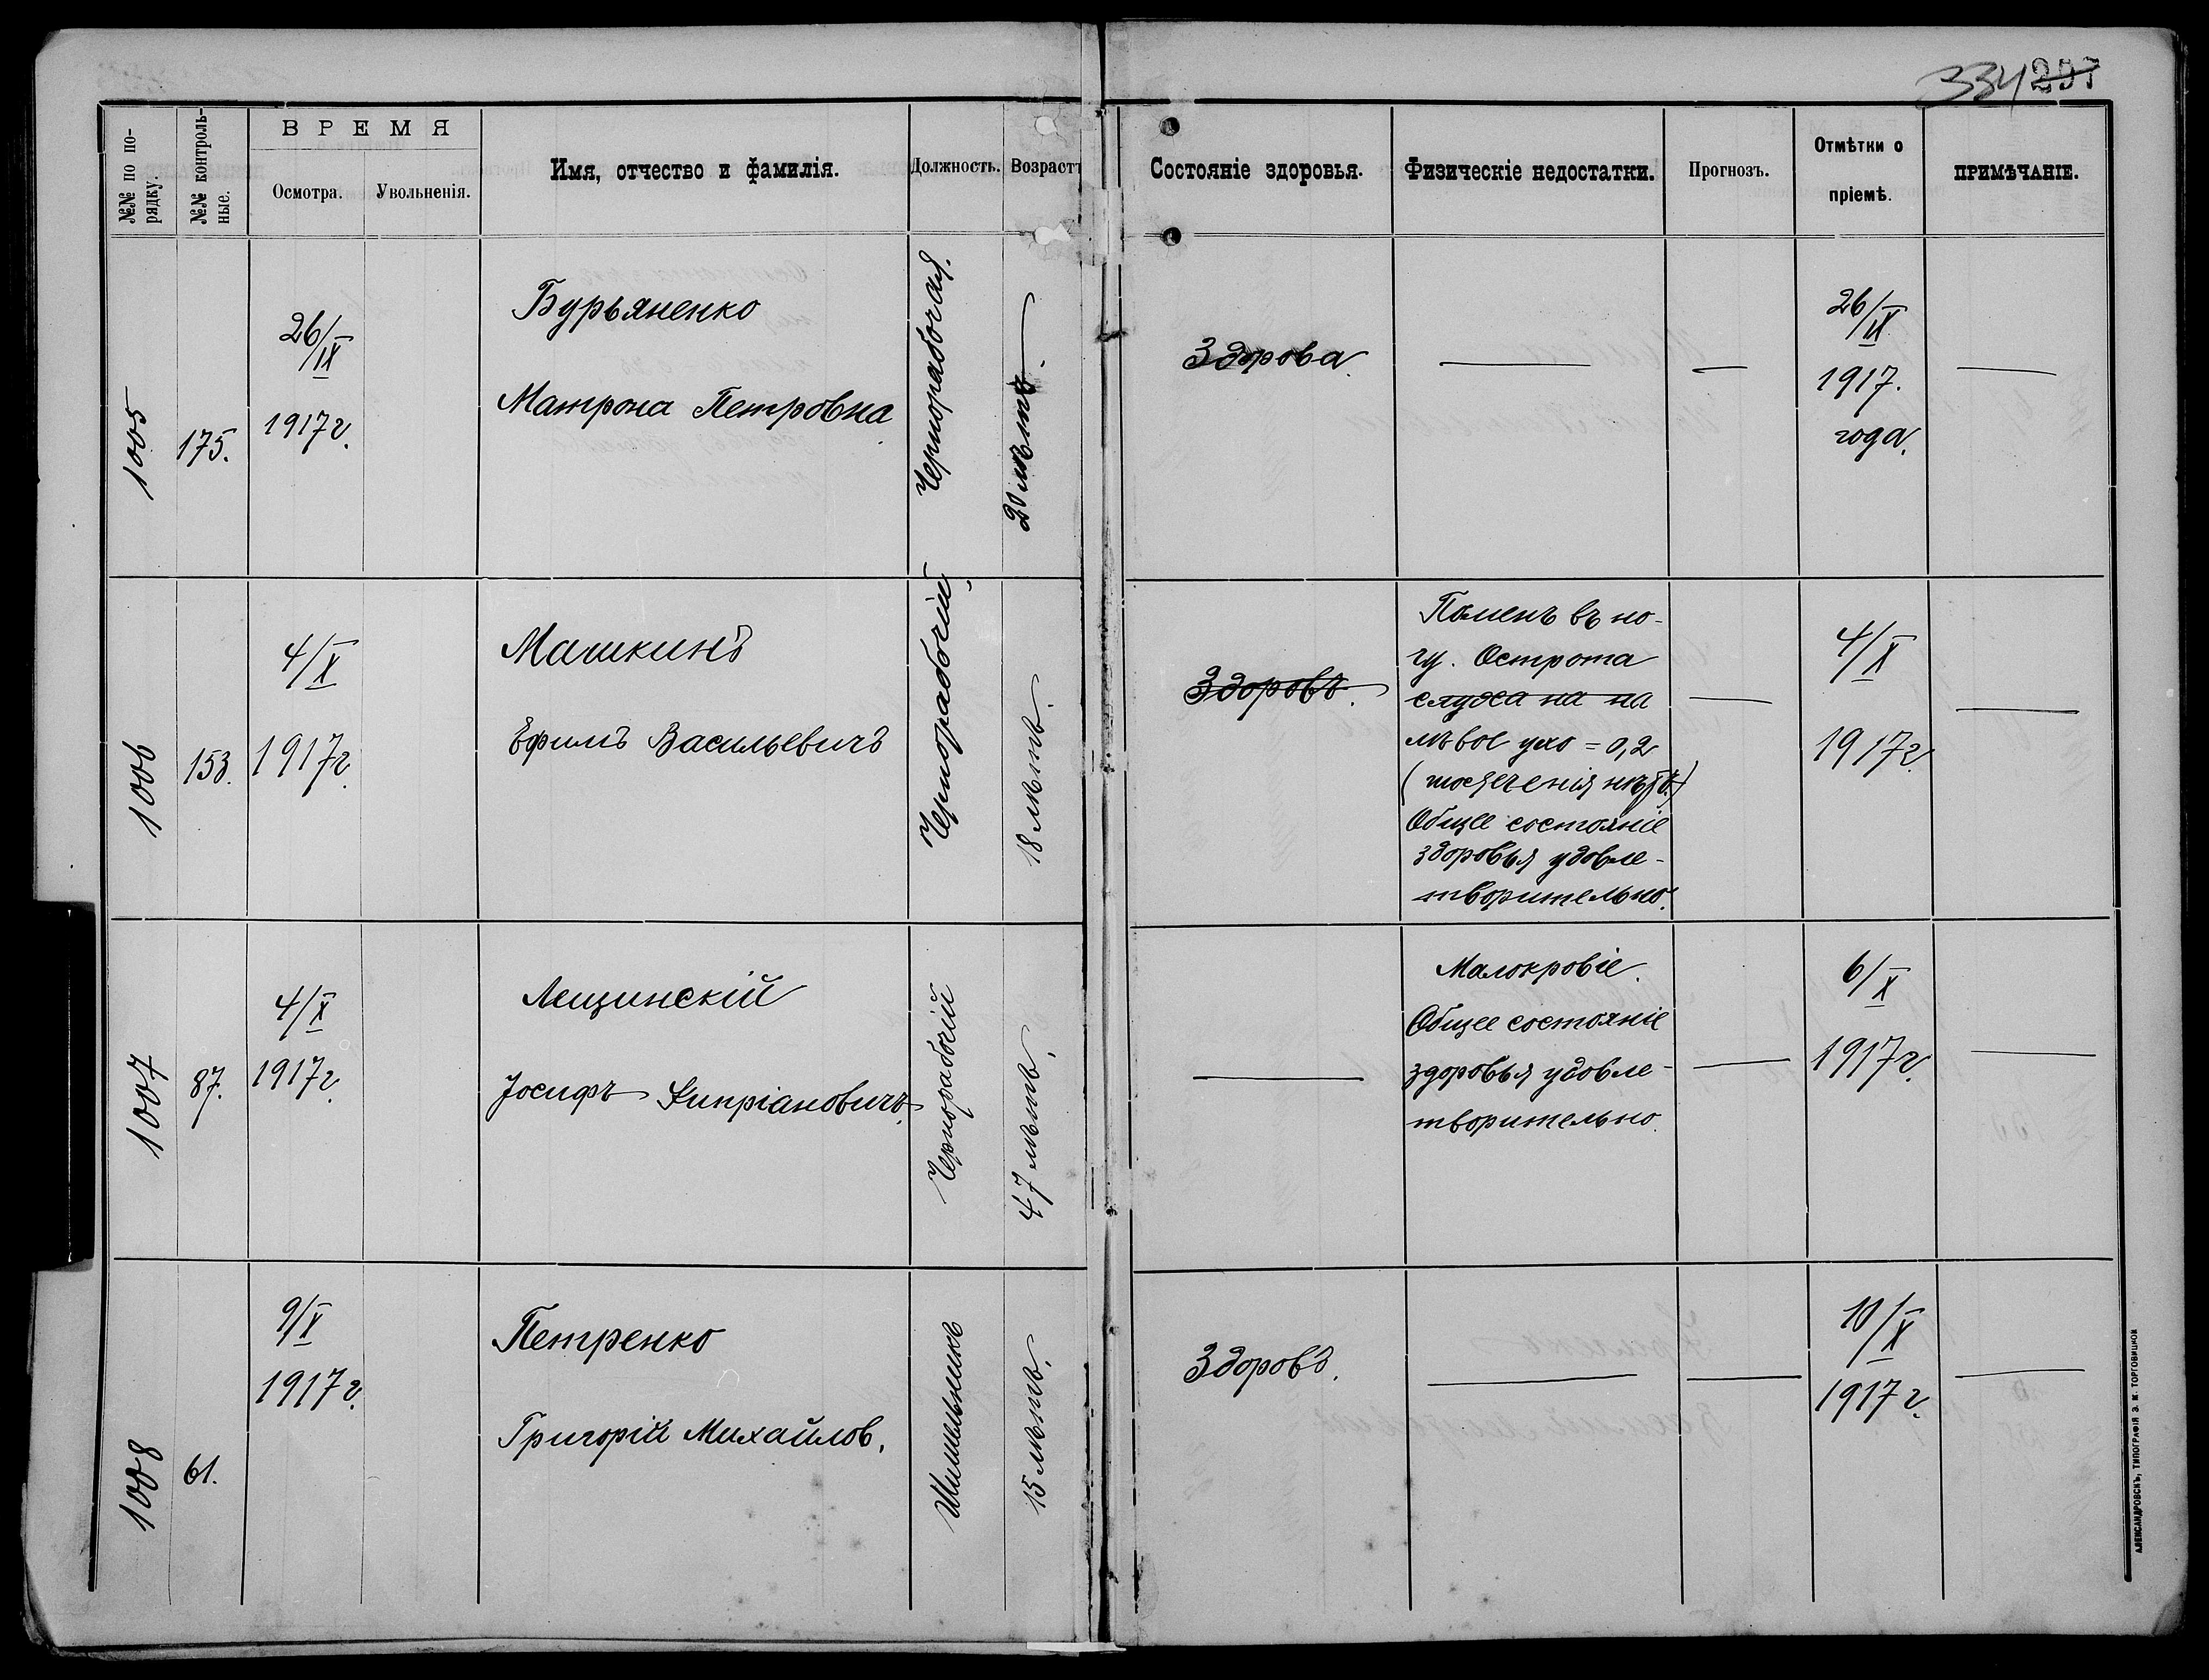 334 297
№№ по по-
рядку.
№№ контроль-
ные.
ВРЕМЯ
Осмотра.
Увольненія.
Имя, отчество и фамилія.
Должность.
Возрастъ
Состояніе здоровья.
Физическіе недостатки.
Прогнозъ.
Отмѣтки о
пріемѣ.
ПРИМѢЧАНІЕ.
1005
175.
26/IX
1917г.
Бурьяненко
Матрона Петровна
Чернорабочая.
20 лѣтъ.
Здорова.
—
—
26/IX
1917.
года.
—
1006
153.
4/X
1917г.
Машкинъ
Ефимъ Васильевичъ
Чернорабочій
18 лѣтъ.
Здоровъ.
въ но-
гу. Острота
слуха на на
лѣвое ухо = 0,2
Общее состояніе
здоровья удовле-
творительно.
—
4/X
1917г.
—
1007
87.
4/X
1917г.
Лещинскій
Іосифъ Кипріановичъ.
Чернорабочій
47 лѣтъ.
—
Малокровіе.
Общее состояніе
здоровья удовле-
творительно.
—
6/X
1917г.
—
1008
61.
9/X
1917г.
Петренко
Григорій Михайлов.
Шишельникъ
15 лѣтъ.
Здоровъ.
—
—
10/X
1917г.
—
АЛЕКСАНДРОВСКЪ, ТИПОГРАФІЯ Э. И. ТОРГОВИЦКОЙ